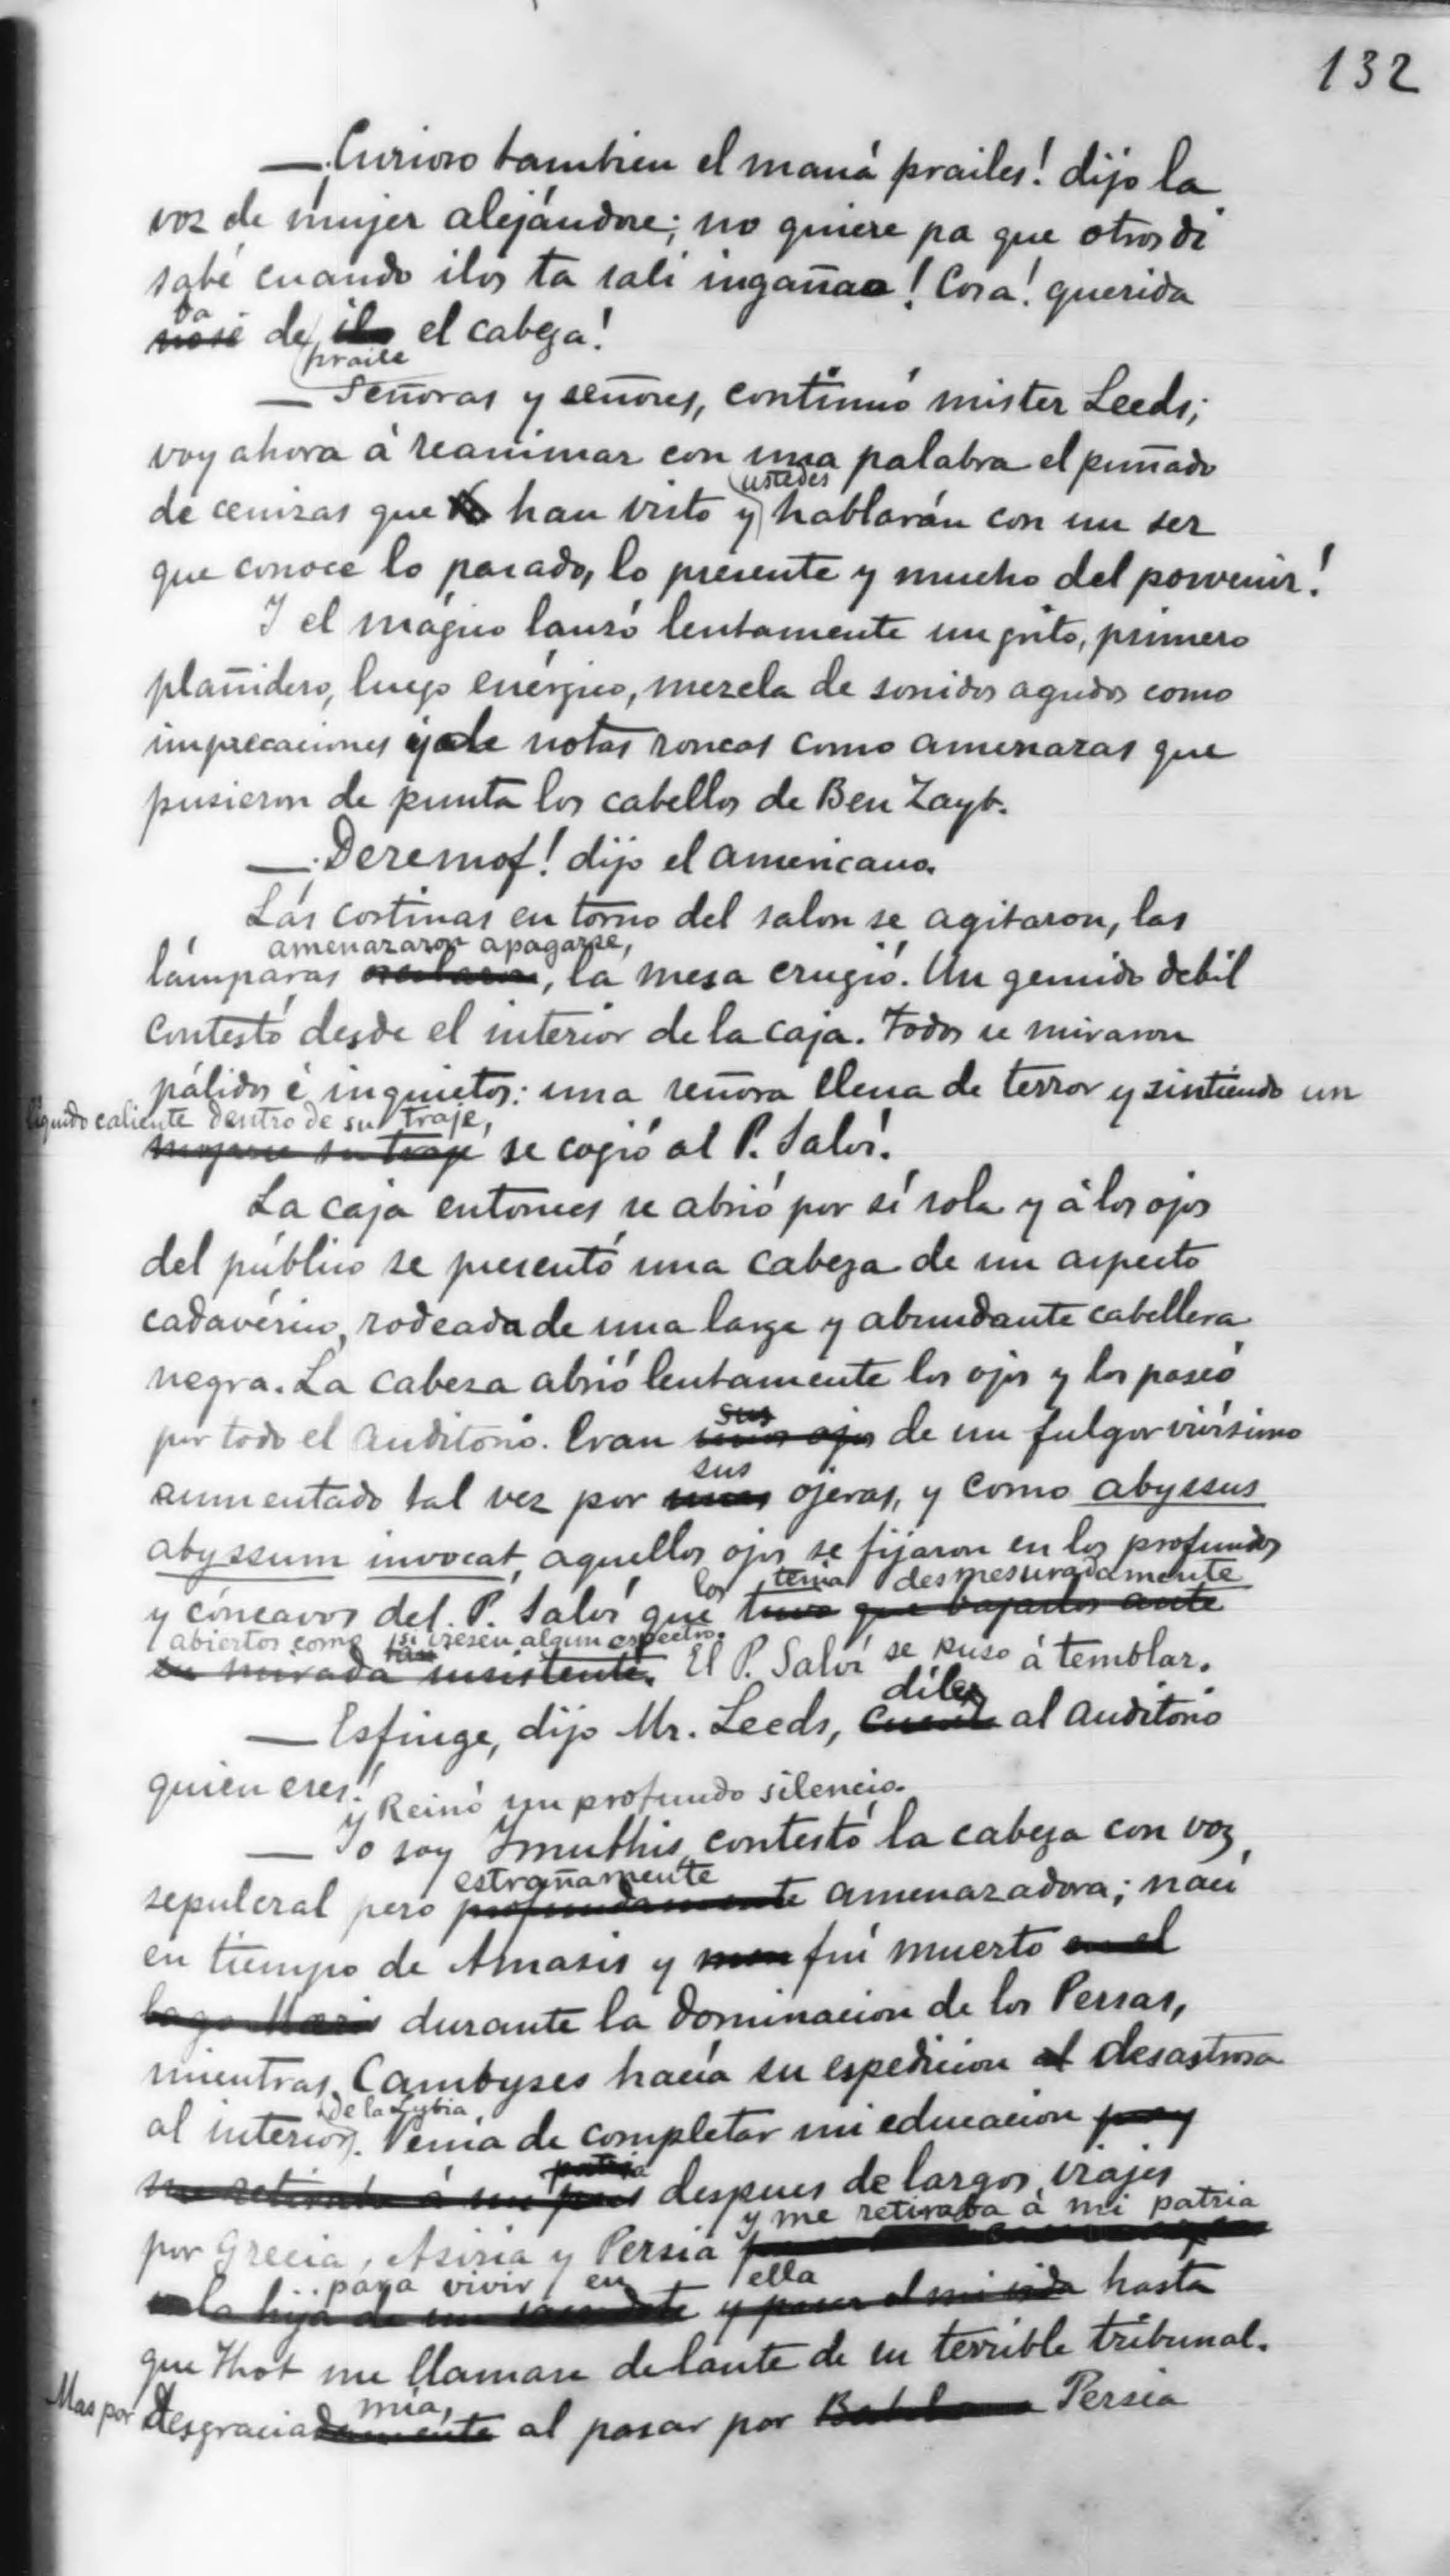 132
—¡Curioso tambien el maná prailes! dijo la
voz de mujer alejándose; no quiere pa que otros di
sabé cuando ilos ta salí ingañao! Cosa! querida
ba
no sé de ilo el cabeza!
praile
— Señoras y señores, continuó mister Leeds;
voy ahora á reanimar con una palabra el puñado
ustedes
de cenizas que han visto y hablarán con un ser
que conoce lo pasado, lo presente y mucho del porvenir!
Y el mágico lanzó lentamente un grito, primero
plañidero, luego enérgico, mezcla de sonidos agudos como
imprecaciones y de notas roncas como amenazas que
pusieron de punta los cabellos de Ben Zayb.
—¡Deremof! dijo el americano.
Las cortinas en torno del salon se agitaron, las
amenazaron apagarse,
lámparas oscilaron, la mesa crugió. Un gemido debil
contestó desde el interior de la caja. Todos se miraron
pálidos é inquietos: una señora llena de terror y sintiendo un
líquido caliente dentro de su traje,
mojarse su traje se cogió al P. Salví.
La caja entonces se abrió por sí sola y á los ojos
del público se presentó una cabeza de un aspecto
cadavérico, rodeada de una larga y abundante cabellera
negra. La cabeza abrió lentamente los ojos y los paseó
sus
por todo el auditorio. Eran unos ojos de un fulgor vivísimo
sus
aumentado tal vez por unas ojeras, y como abyssus
abyssum invocat, aquellos ojos se fijaron en los profundos
los tenia desmesuradamente
y cóncavos del P. Salví que tuvo que bajarlos ante
abiertos como si viesen algun espectro.
tan
su mirada insistente. El P. Salví se puso á temblar.
díles
— Esfinge, dijo Mr. Leeds, cuenta al auditorio
quien eres!
y Reinó un profundo silencio.
— Yo soy Ymuthis, contestó la cabeza con voz
estrañamente
sepulcral pero profundamente amenazadora; nací
en tiempo de Amasis y fuí muerto en el
lago Mœris durante la dominacion de los Persas,
mientras Cambyses hacía su espedicion al desastrosa
de la Lybia
al interior. Venia de completar mi educacion
patria
me retiraba á mi pais despues de largos viajes
y me retiraba á mi patria
por Grecia, Asiria y Persia
para vivir en ella
la hija de un sacerdote y pasar mi vida hasta
que Thot me llamase delante de su terrible tribunal.
Mas por mia,
desgraciadamente al pasar por Persia